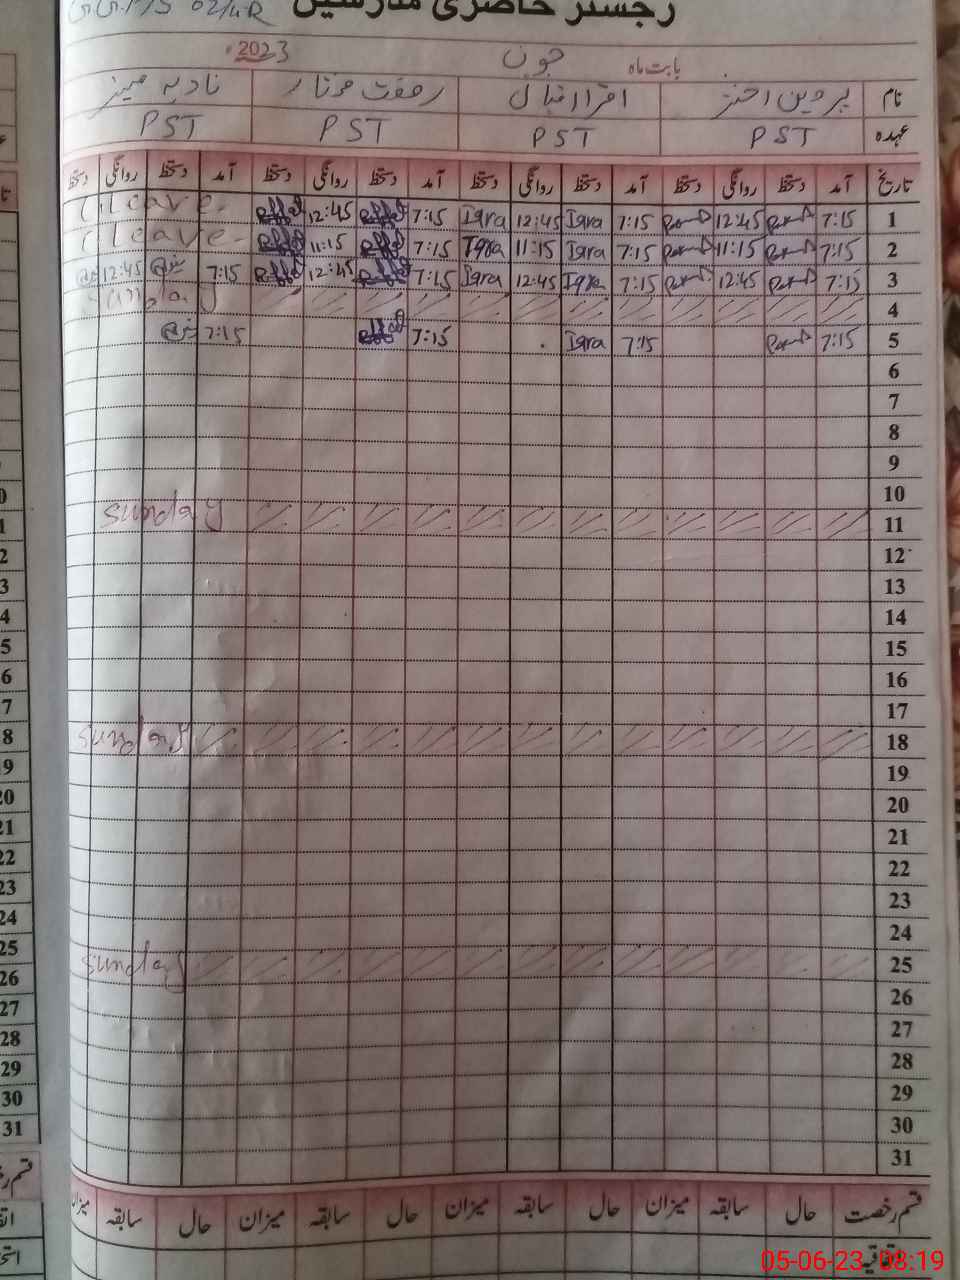 رجسٹر حاضری مدرسین
بابت ماہ جون 2023
نام پروین اختر اقرا اقبال رفعت مختار نادیہ
عہدہ PST PST PST PST
تاریخ آمد دستخط روانگی دستخط آمد دستخط روانگی دستخط آمد دستخط روانگی دستخط آمد دستخط روانگی دستخط
1 7:15 12:45 7:15 Iqra 12:45 Iqra 7:15 12:45 C leave
2 7:15 11:15 7:15 Iqra 11:15 Iqra 7:15 11:15 C leave
3 7:15 12:45 7:15 Iqra 12:45 Iqra 7:15 12:45 7:15 12:45
4 Sunday
5 7:15 7:15 Iqra 7:15 7:15
6
7
8
9
10
11 Sunday
12
13
14
15
16
17
18 Sunday
19
20
21
22
23
24
25 Sunday
26
27
28
29
30
31
قسم رخصت حال سابقہ میزان حال سابقہ میزان حال سابقہ میزان حال سابقہ میزان
اتفاقیہ
05-06-23 08:19